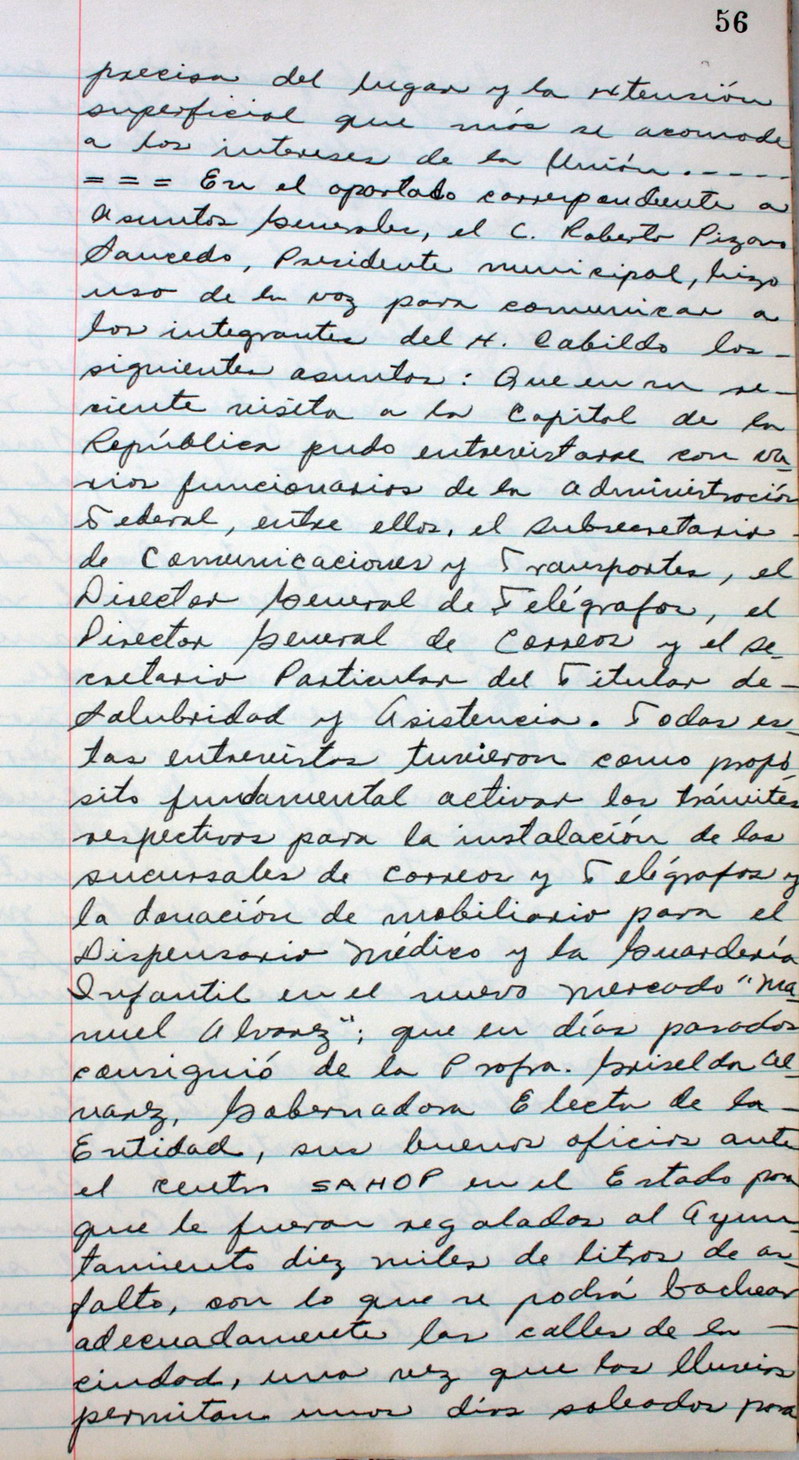 56
precisa del lugar y la extensión
superficial que más se acomode
a los intereses de la Unión.----
=== En el apartado correspondiente a
Asuntos Generales, el C. Roberto Pizano
Saucedo, Presidente municipal, hizo
uso de la voz para comunicar a
los integrantes del H. Cabildo los-
siguientes asuntos: Que en su re-
ciente visita a la Capital de la
República pudo entrevistarse con va-
rios funcionarios de la administración
Federal, entre ellos, el Subsecretario-
de Comunicaciones y Transportes, el
Director General de Telégrafos, el
Director General de Correos y el Se-
cretario Particular del Titular de-
Salubridad y Asistencia. Todas es-
tas entrevistas tuvieron como propó-
sito fundamental activar los trámites
respectivos para la instalación de las
sucursales de Correos y Telégrafos y
la donación de mobiliario para el
Dispensario Médico y la Guardería
Infantil en el nuevo Mercado "Ma-
nuel Alvarez"; que en días pasados
consiguió de la Profra. Griselda Al-
varez, Gobernadora Electa de la-
Entidad, sus buenos oficios ante
el centro SAHOP en el Estado para
que le fueran regalados al Ayun-
tamiento diez miles de litros de as-
falto, con lo que se podrá bachear
adecuadamente las calles de la -
ciudad, una vez que las lluvias
permitan unos días soleados para